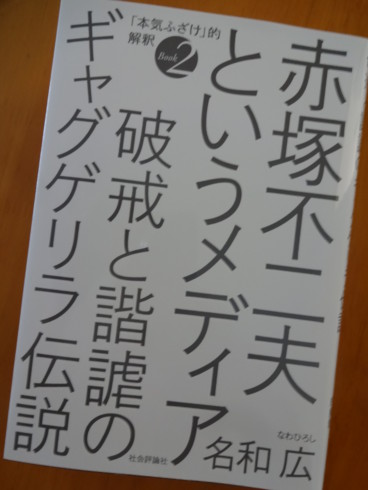 赤塚不二夫
というメディア
破戒と諧謔の
ギャグゲリラ伝説
「本気ふざけ」的
解釈
Book 2
なわひろし
名和 広
社会評論社